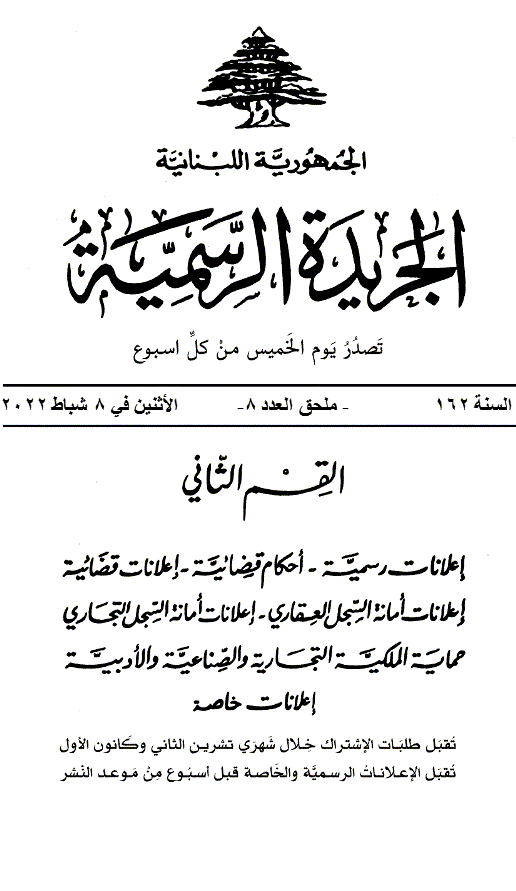 الجمهورية اللبنانية
الجريدة الرسمية
تصدر يوم الخميس من كل اسبوع
السنة ١٦٢ - ملحق العدد ٨- الأثنين في ٨ شباط ٢٠٢٢
القسم الثاني
إعلانات رسمية - أحكام قضائية - إعلانات قضائية
إعلانات أمانة السجل العقاري - إعلانات أمانة السجل التجاري
حماية الملكية التجارية والصناعية والأدبية
إعلانات خاصة
تقبل طلبات الإشتراك خلال شهري تشرين الثاني وكانون الأول
تقبل الإعلانات الرسمية والخاصة قبل أسبوع من موعد النشر